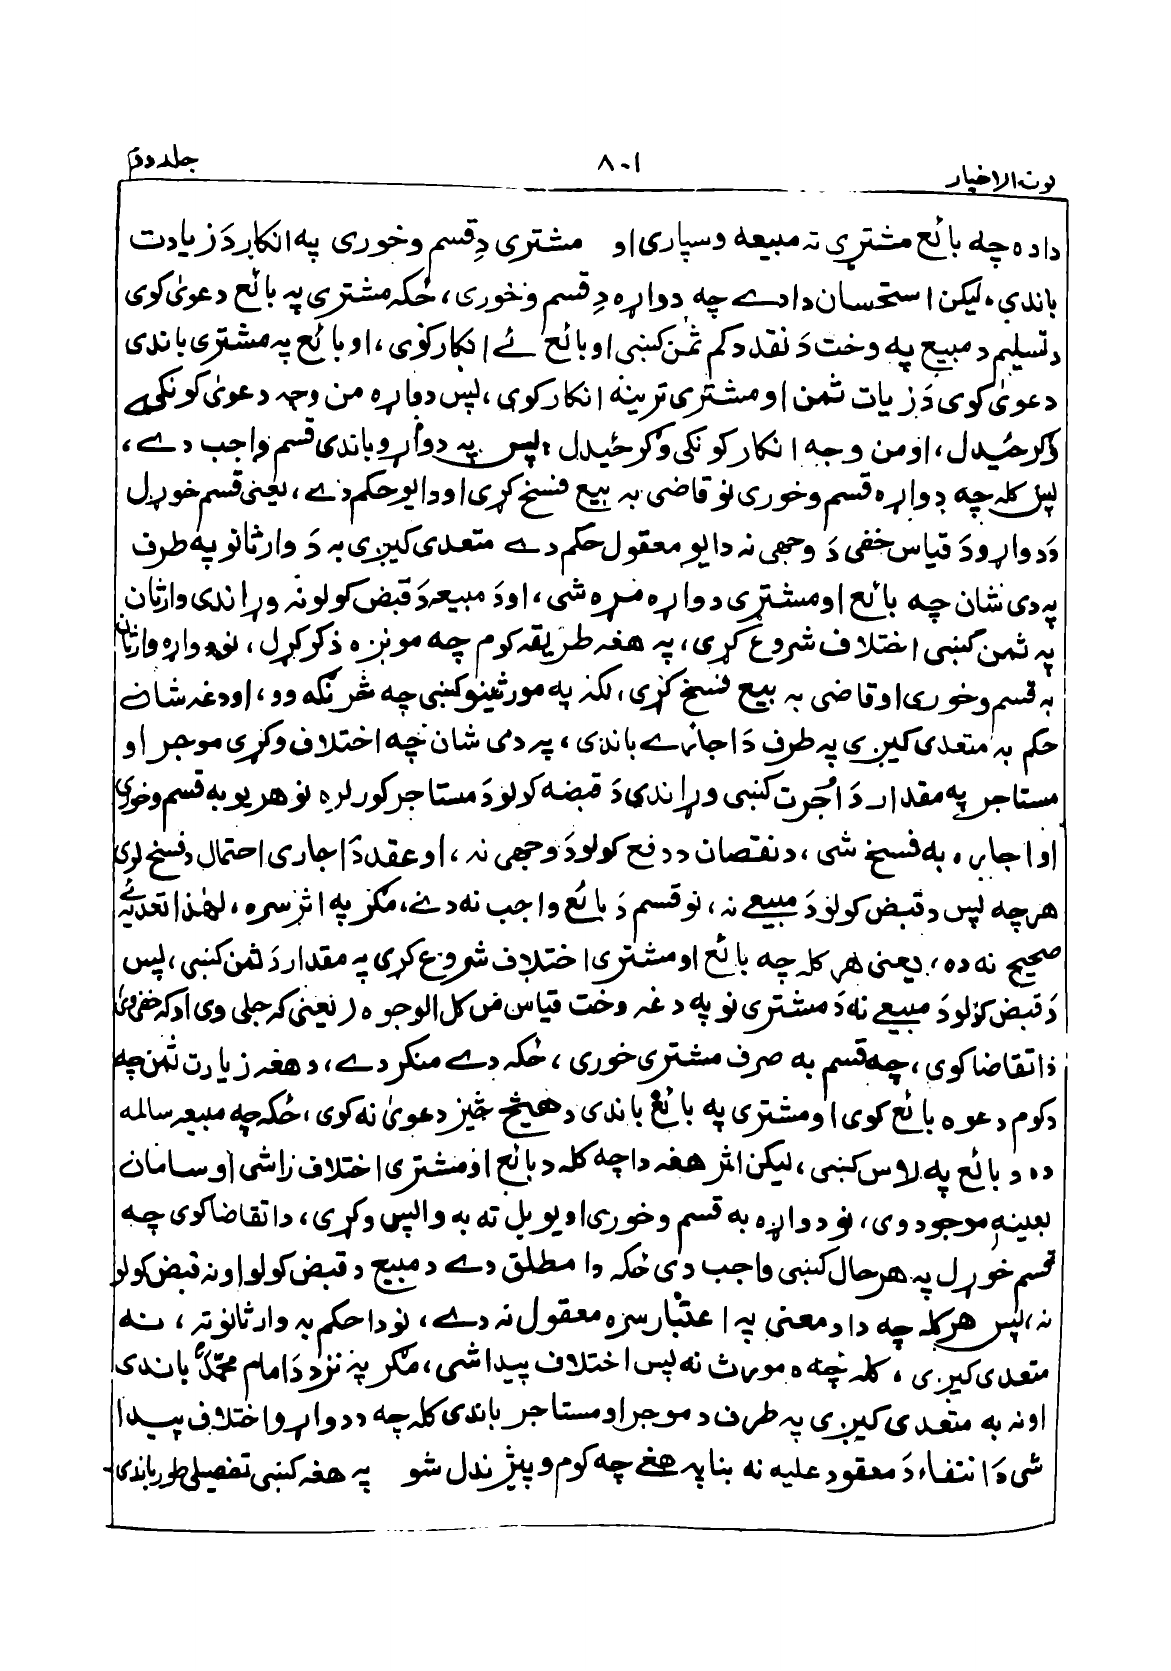 نوتة الاخیار ۸۰۱ جلد دوم
داده چه بائع مشتری ته مبیعه وسپاری او مشتری دِ قسم وخوری په انکار دَ زیادت
باندی، لیکن استحسان دادے چه دواړه دِ قسم وخوری، ځکه مشتری په بائع دعویٰ کوی
د تسلیم د مبیع په وخت دَ نقد د کم ثمن کښی او بائع ئے انکار کوی، او بائع په مشتری باندی
دعویٰ کوی دَ زیات ثمن او مشتری ترینه انکار کوی، پس دواړه من وجه دعویٰ کونکے
وګرځیدل، او من وجه انکار کونکی وګرځیدل، پس په دواړو باندی قسم واجب دے،
پس کله چه دواړه قسم وخوری نو قاضی به بیع فسخ کړی او دا یو حکم دے، یعنی قسم خوړل
دَ دواړو دَ قیاس خفی دَ وجهی نه دا یو معقول حکم دے متعدی کیږی به دَ وارثانو په طرف
په دی شان چه بائع او مشتری دواړه مړه شی، او دَ مبیعه دَ قبض کولو نه وړاندی وارثان
په ثمن کښی اختلاف شروع کړی، په هغه طریقه کوم چه مونږه ذکر کړل، نو دواړه وارثان
به قسم وخوری او قاضی به بیع فسخ کړی، لکه په مورثینو کښی چه څرنګه وو، او دغه شانے
حکم به متعدی کیږی په طرف دَ اجارے باندی، په دی شان چه اختلاف وکړی موجر او
مستاجر په مقدار دَ اُجرت کښی وړاندی دَ قبضه کولو دَ مستاجر کور لره نو هر یو به قسم وخوری
او اجاره به فسخ شی، د نقصان د دفع کولو دَ وجهی نه، او عقد دَ اجاری احتمال د فسخ لری
هر چه پس د قبض کولو دَ مبیعے نه، نو قسم دَ بائع واجب نه دے، مګر په اثر سره، لهٰذا تعدیه ئے
صحیح نه ده، یعنی هر کله چه بائع او مشتری اختلاف شروع کړی په مقدار دَ ثمن کښی، پس
دَ قبض کولو دَ مبیعے نه دَ مشتری نو په دغه وخت قیاس من کل الوجوه (یعنی که جلی وی او که خفی وی
دا تقاضا کوی، چه قسم به صرف مشتری خوری، ځکه دے منکر دے، د هغه زیارت ثمن چه
د کوم دعوه بائع کوی او مشتری په بائع باندی د هیڅ څیز دعویٰ نه کوی، ځکه چه مبیعه سالمه
ده د بائع په لاس کښی، لیکن اثر هغه دا چه کله د بائع او مشتری اختلاف راشی او سامان
بعینه موجود وی، نو دواړه به قسم وخوری او یو بل ته به واپس وکړی، دا تقاضا کوی چه
قسم خوړل په هر حال کښی واجب دی ځکه دا مطلق دے د مبیع د قبض کولو او نه قبض کولو
نه، پس هر کله چه دا د معنی په اعتبار سره معقول نه دے، نو دا حکم به وارثانو ته، نه
متعدی کیږی، کله څه ه مورث نه پس اختلاف پیدا شی، مګر په نزد دَ امام محمدؒ باندی
او نه به متعدی کیږی په طرف د موجر او مستاجر باندی کله چه د دواړو اختلاف پیدا
شی دَ انتفاء دَ معقود علیه نه بنا په هغے چه کوم وپیژندل شو په هغه کښی تفصیلی طور باندی